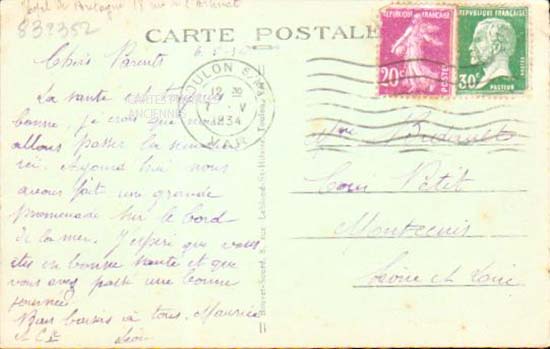 Hotel de Bretagne 18 rue de l'
832352
CARTE POSTALE
6.5.
Chers Parents
La santé est toujours
bonne, je crois que nous
allons passer la semaine
ici. Aujourd'hui nous
avons fait une grande
promenade sur le bord
de la mer. J'espère que vous
êtes en bonne santé et que
vous avez passé une bonne
journée.
Bons baisers à tous. Maurice
Léon
CARTES POSTALES
ANCIENNES
TOULON S/MER
12 30
7 - V
1934
VAR
RÉPUBLIQUE FRANÇAISE
20c
POSTES
30c
PASTEUR
Mme
Coin Petit
Montcenis
Saône et Loire